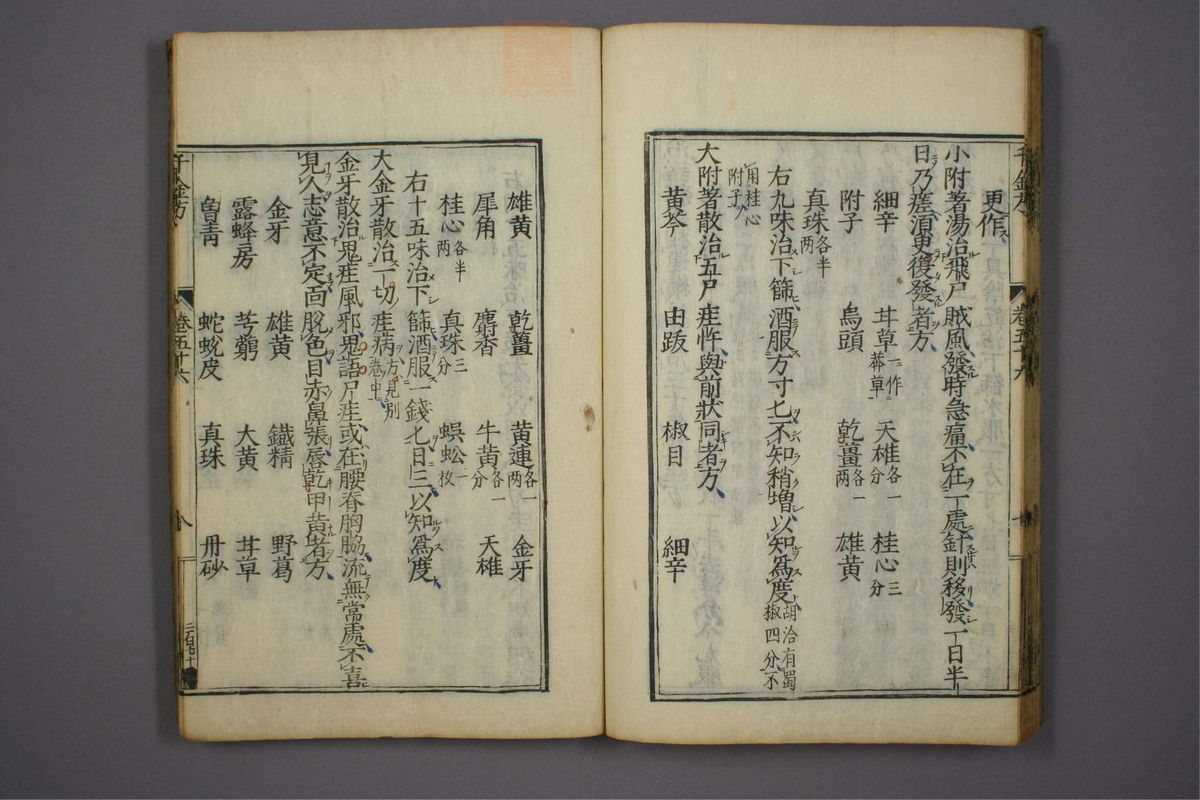 更作
小附著湯治飛尸賊風發時急痛不在一處針則移發一日半
日乃瘥須更復發者方
細辛 茸草一作莽草 天雄各一分 桂心三分
附子 烏頭 乾薑各一两 雄黄
真珠各半两
右九味治下篩酒服方寸匕不知稍增以知為度胡洽有蜀椒四分不
用桂心附子
大附著散治五尸疰忤與前狀同者方
黄芩 由跋 椒目 細辛
千金方 卷五十六
雄黄 乾薑 黄連各一两 金牙
犀角 麝香 牛黄各一分 天雄
桂心各半两 真珠三分 蜈蚣一枚
右十五味治下篩酒服一錢匕日三以知為度
大金牙散治一切疰病方見別卷中
金牙散治鬼疰風邪鬼語尸疰或在腰脊胸脇流無常處不喜
見人志意不定面脫色目赤鼻張唇乾甲黄者方
金牙 雄黄 鐵精 野葛
露蜂房 芎藭 大黄 茸草
曾青 蛇蛻皮 真珠 丹砂
千金方 卷五十六